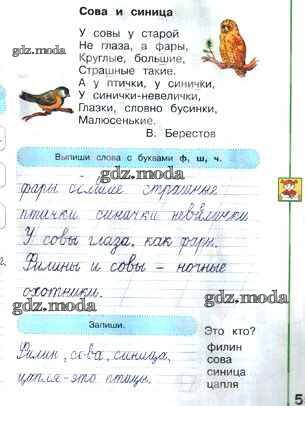 Сова и синица
У совы у старой
Не глаза, а фары,
Круглые, большие,
Страшные такие.
А у птички, у синички,
У синички-невелички,
Глазки, словно бусинки,
Малюсенькие.
В. Берестов
gdz.moda
gdz.moda
Выпиши слова с буквами ф, ш, ч.
gdz.moda
фары большие страшные
птички синички невелички
У совы глаза, как фары.
Филины и совы – ночные
охотники.
gdz.moda
gdz.moda
Запиши.
Это кто?
Филин, сова, синица,
цапля-это птицы.
филин
сова
синица
цапля
gdz.moda
gdz.moda
5